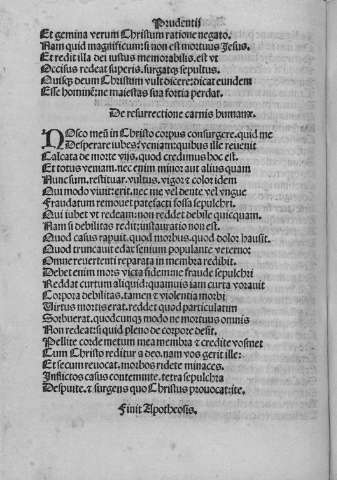 Prudentii
Et gemina verum Christum ratione negato.
Nam quid magnificum: si non est mortuus Jesus.
Et redit illa dei iustus memorabilis est vt
Occisus redeat superis. surgatqꝫ sepultus.
Quisqꝫ deum Christum vult dicere: dicat eundem
Esse hominē: ne maiestas sua fortia perdat.
De resurrectione carnis humanæ.
NOsco meū in Christo corpus consurgere. quid me
Desperare iubes: veniam: quibus ille reuenit
Calcata de morte vijs. quod credimus hoc est.
Et totus veniam. nec enim minor aut alius quam
Nunc sum. restituar. vultus. vigor ⁊ color idem
Qui modo viuit: erit. nec me vel dente vel vngue
Fraudatum remouet patefacti fossa sepulchri.
Qui iubet vt redeam: non reddet debile quicquam.
Nam si debilitas redit: instauratio non est.
Quod casus rapuit. quod morbus. quod dolor hausit.
Quod truncauit edax senium populante veterno:
Omne reuertenti reparata in membra redibit.
Debet enim mors victa fidem: ne fraude sepulchri
Reddat curtum aliquid: quamuis iam curta vorauit
Corpora debilitas. tamen ⁊ violentia morbi
Virtus mortis erat. reddet quod particulatim
Sorbuerat. quodcunqꝫ modo: ne mortuus omnis
Non redeat: si quid pleno de corpore desit.
Pellite corde metum mea membra ⁊ credite vosmet
Cum Christo reditura deo. nam vos gerit ille:
Et secum reuocat. morbos ridete minaces.
Inflictos casus contemnite. tetra sepulchra
Despuite. ⁊ surgens quo Christus prouocat: ite.
Finit Apotheosis.